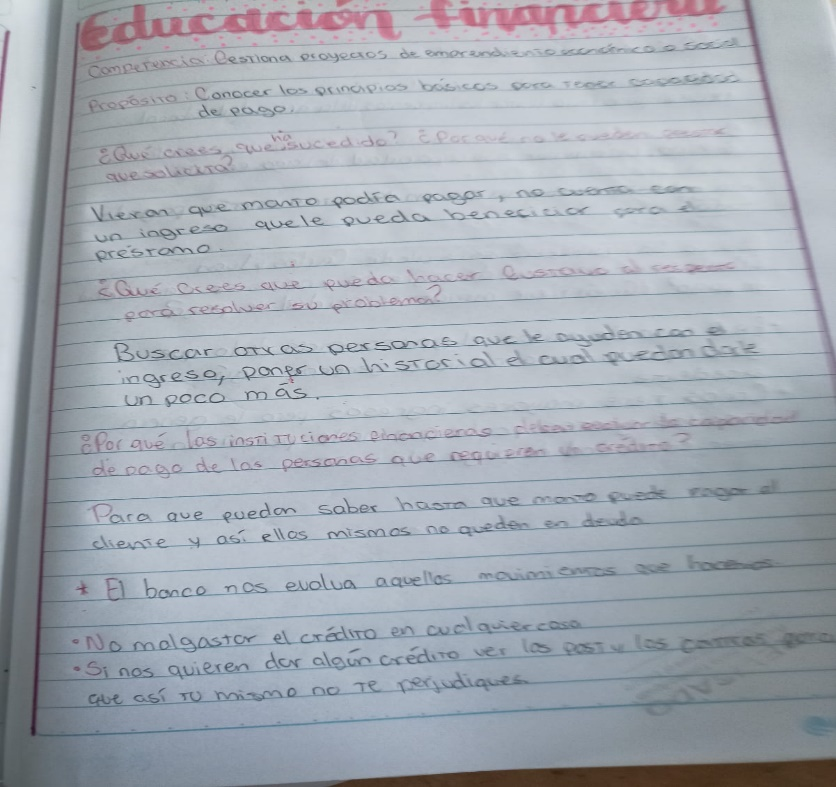 Educación financiera
Competencia: Gestiona proyectos de emprendimiento económico o social
Propósito: Conocer los principios básicos para tener capacidad
de pago.
¿Qué crees que ha sucedido? ¿Por qué no le
que solicitó?
Vieran que monto podía pagar, no cuenta con
un ingreso que le pueda beneficiar para el
préstamo.
¿Qué Crees que pueda hacer Gustavo al respecto
para resolver su problema?
Buscar otras personas que le ayuden con el
ingreso, poner un historial el cual puedan darle
un poco más.
¿Por qué las instituciones financieras deben evaluar la capacidad
de pago de las personas que requieren un crédito?
Para que puedan saber hasta que monto puede pagar el
cliente y así ellas mismas no queden en deuda
* El banco nos evalua aquellos movimientos que hacemos
• No malgastar el crédito en cualquier cosa
• Si nos quieren dar algún crédito ver los pos y los contras para
que así tu mismo no te perjudiques